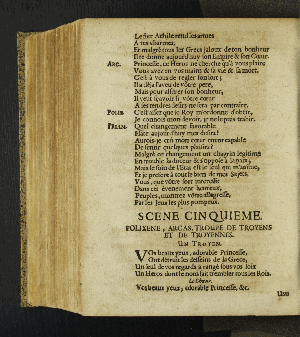 Le fier Achille rend les armes
A vos charmes,
Et malgré tous les Grecs jaloux de son bonheur
Il te donne aujourd'huy son Empire & son Cœur.
ARC. Princesse, ce Heros ne cherche qu'à vous plaire
Vous avez en vos mains & sa vie & sa mort.
C'est à vous de regler son sort;
Il a déja l'aveu de vôtre pere,
Mais pour assurer son bonheur,
Il veut sçavoir si vôtre cœur
A ses tendres desirs ne sera pas contraire.
POLIX. C'est assez que le Roy m'ordonne d'obéir,
Je connois mon devoir, je ne le puis trahir.
PRIAM. Quel changement favorable
Flate aujourd'huy mes desirs!
Aurois-je crû mon cœur encor capable
De sentir quelques plaisirs?
Malgré ce changement un chagrin legitime
En trouble la douceur & s'oppose à la paix;
Mais le soin de l'Etat est le seul qui m'anime,
Et je prefere à tout le bien de mes Sujets.
Vous, que vôtre sort interesse
Dans cet évenement heureux,
Peuples, montrez vôtre allegresse,
Par les Jeux les plus pompeux.
SCENE CINQUIEME.
POLIXENE, ARCAS, TROUPE DE TROYENS
ET DE TROYENNES.
UN TROYEN.
VOs beaux yeux, adorable Princesse,
Ont détruit les desseins de la Grece,
Un seul de vos regards a rangé sous vos loix
Un Heros dont le nom fait trembler tous les Rois.
Le Chœur.
Vos beaux yeux, adorable Princesse, &c.